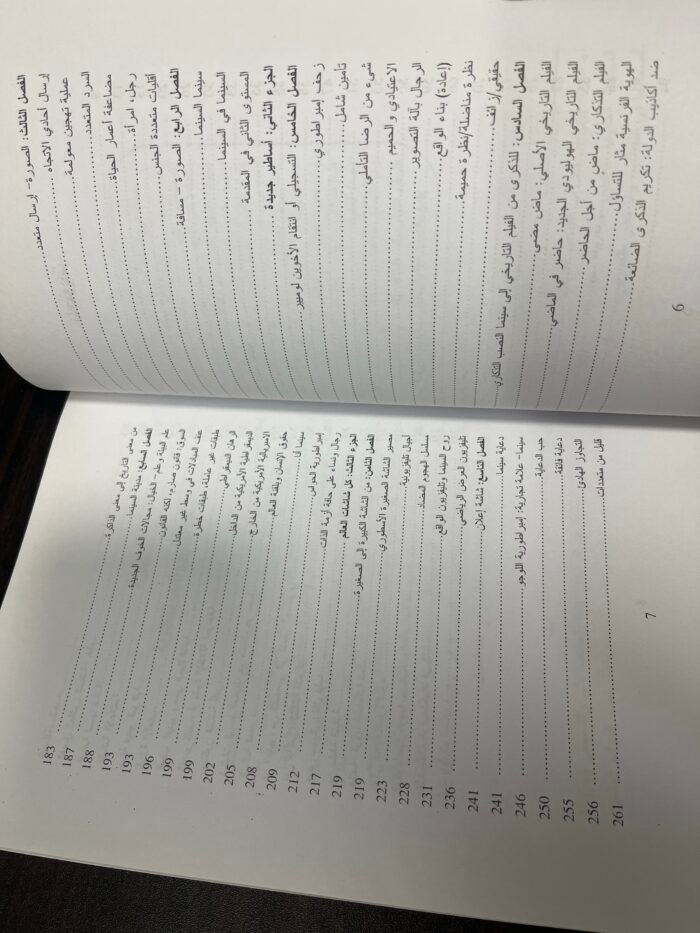 الفصل الثالث: الصورة - إرسال متعدد
إرسال أحادي الاتجاه
عملية تهجين معولمة
السرد المتعدد
مضاعفة أعمار الحياة
رجل، امرأة
أقليات متعددة الجنس
الفصل الرابع: الصورة - مسافة
سينما السينما
السينما في السينما
المستوى الثاني في المقدمة
الجزء الثاني: أساطير جديدة
الفصل الخامس: التسجيلي أو انتقام الأخوين لوميير
زحف إمبراطوري
تأمين شامل
شيء من الرضا التأملي
الاعتيادي والحميم
الرجال بآلة التصوير
(إعادة) بناء الواقع
نظرة مناضلة/نظرة حميمة
حقيقي/زائف
الفصل السادس: للذكرى من الفيلم التاريخي إلى سينما النصب التذكاري
الفيلم التاريخي الأصلي: ماض مضى
الفيلم التاريخي الهوليودي الجديد: حاضر في الماضي
الفيلم التذكاري: ماض من أجل الحاضر
الهوية الفرنسية مثار للتساؤل
ضد أكاذيب الدولة: تكريم الذكرى الضائعة
6
من معنى التاريخ إلى معنى الذاكرة 183
الفصل السابع: مدينة السينما 187
علم البيئة وعلم-الخيال: مجالات الخوف الجديدة 188
السوق: قانون صارم، لكنه القانون 193
عنف المبادلات في وسط غير ممتثل 193
طبقات غير عاملة، طبقات خطرة 196
الرهان الديمقراطي 199
الديمقراطية الأمريكية من الداخل 199
الامبريالية الأمريكية من الخارج 202
حقوق الإنسان وبقية العالم 205
سينما أنا 208
إمبراطورية الحواس 209
رجال ونساء على حافة أزمة الذات 212
الجزء الثالث: كل شاشات العالم 217
الفصل الثامن: من الشاشة الكبيرة إلى الصغيرة 219
مصير الشاشة الصغيرة الأسطوري 219
أجيال تليفزيونية 223
مسلسل الهجوم المضاد 228
روح السينما وتليفزيون الواقع 231
تليفزيون العرض الرياضي 236
الفصل التاسع: شاشة إعلان 241
دعاية سينما 241
سينما- علامة تجارية: إمبراطورية اللوجو 246
حب الدعاية 250
دعاية فائقة 255
التجاوز الهادئ 256
قليل من معدات 261
7